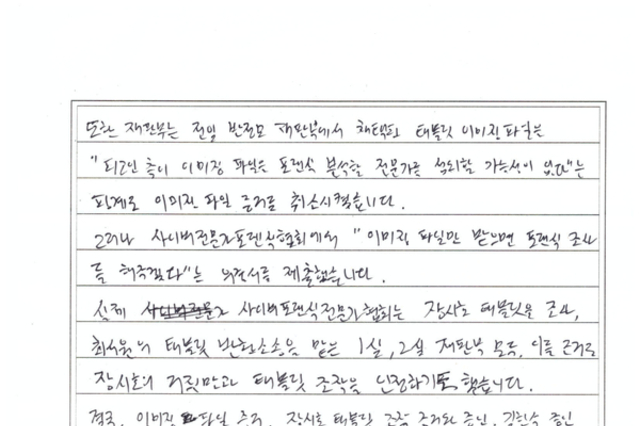 또한 재판부는 전임 반정모 재판부에서 채택한 태블릿 이미징파일은
"피고인 측이 이미징 파일은 포렌식 분석할 전문가를 섭외할 가능성이 없다"는
핑계로 이미징 파일 증거를 취소시켰습니다.
그러나 사이버전문가포렌식협회에서 "이미징 파일만 받으면 포렌식 조사
를 해주겠다"는 의견서를 제출했습니다.
실제 사이버포렌식전문가협회는 장시호 태블릿을 조사,
최서원의 태블릿 반환소송을 맡은 1심, 2심 재판부 모두, 이를 근거로
장시호의 거짓말과 태블릿 조작을 인정하기도 했습니다.
결국, 이미징 파일 증거, 장시호 태블릿 조작 증거와 증인, 김한수 증인